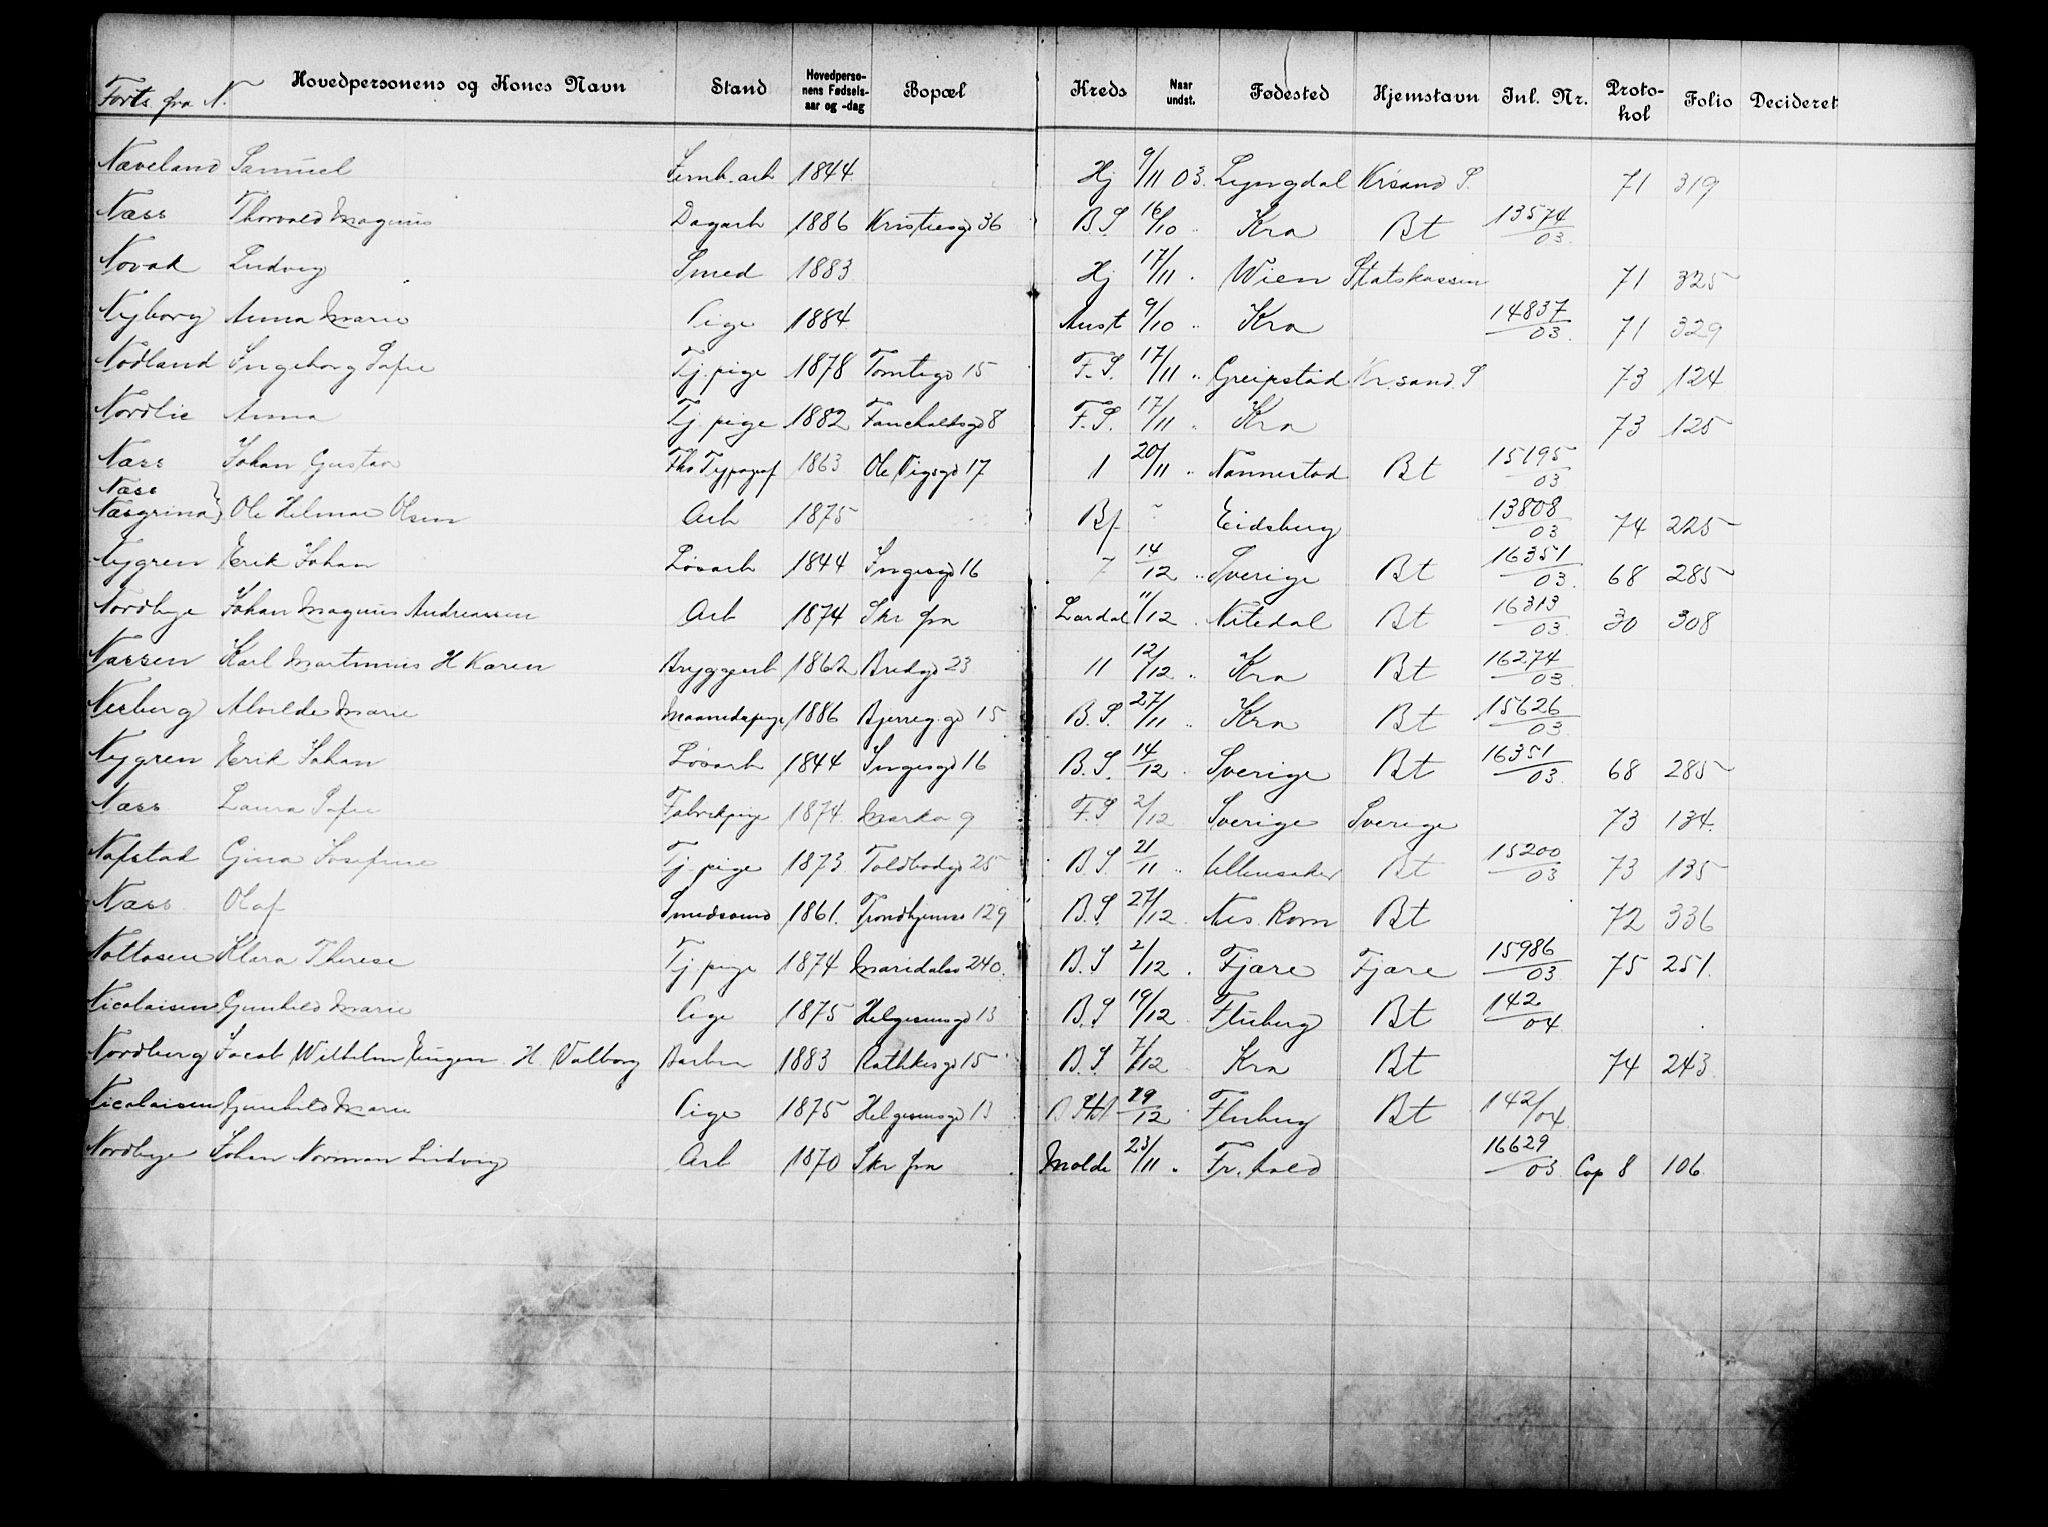 Forts. fra N.
Hovedpersonens og Kones Navn Stand Hovedpersonens Fødselsaar og -dag Bopæl Kreds Naar undst. Fødested Hjemstavn Inl. Nr. Protokol Folio Decideret
Næveland Samuel Jernb. arb 1844 Hj 9/11 03. Lyngdal Kr.sand S. 71 319
Næss Thorvald Magnus Dagarb 1886 Kristiesgd 36 B.S. 16/10 " Kra Bt 13574/03.
Novak Ludvig Smed 1883 Hj 17/11 . Wien Statskassen 71 325
Nyborg Anna Marie Pige 1884 Aust 9/10 " Kra 14837/03. 71 329
Nodland Ingeborg Sofie Tj. pige 1878 Tomtegd 15 F.S. 17/11 " Greipstad Kr.sand. S 73 124
Nordlie Anna Tj. pige 1882 Fauchaldsgd 8 F.S. 17/11 . Kra 73 125
Næss Johan Gustav Fhv Typograf 1863 Ole Vigsgd 17 1 20/11 " Nannestad Bt 15195/03
Næss
Næsgrina} Ole Helmar Olsen Arb 1875 Bf " Eidsberg 13808/03 74 225
Nygren Erik Johan Løsarb 1844 Ingesgd 16 7 14/12 " Sverige Bt 16351/03. 68 285
Nordbye Johan Magnus Andreassen Arb 1874 Skr fra Lardal 11/12 Nitedal Bt 16313/03. 30 308
Nassen Karl Martinius H Karen Bryggearb 1862 Bredgd 23 11 12/12 " Kra Bt 16274/03.
Nesberg Alvilde Marie Maanedspige 1886 Bjerreg.gd 15 B.S. 27/11 " Kra Bt 15626/03.
Nygren Erik Johan Løsarb 1844 Ingesgd 16 B.S. 14/12 . Sverige Bt 16351/03. 68 285
Næss Laura Sofie Fabrikpige 1874. Markv 9 F.S 2/12 Sverige Sverige 73 134.
Nafstad Gina Josefine Tj. pige 1873 Toldbodgd 25 B.S 21/11 " Ullensaker Bt 15200/03 73 135
Næss Olaf Smedsvend 1861. Trondhjemsv 129 B.S 27/12 . Nes. Rom Bt 72 336
Noltosen Klara Therese Tj. pige 1874 Maridalsv 240. B.S 2/12 . Fjære Fjære 15986/03 75 251.
Nicolaisen Gunhild Marie Pige 1875 Helgesensgd 13 B.S 19/12 . Fluberg Bt 142/04
Nordberg Jacob Wilhelm Eugen. H. Valborg Barber 1883 Rathkesgd 15 B.S 7/12 Kra Bt 74 243.
Nicolaisen Gunhild Marie Pige 1875 Helgesensgd 13 19/12 Fluberg Bt 142/04.
Nordbye Johan Norman Ludvig Arb 1870 Skr fra Molde 23/11 . Fr.hald 16629/03 Cop 8 106